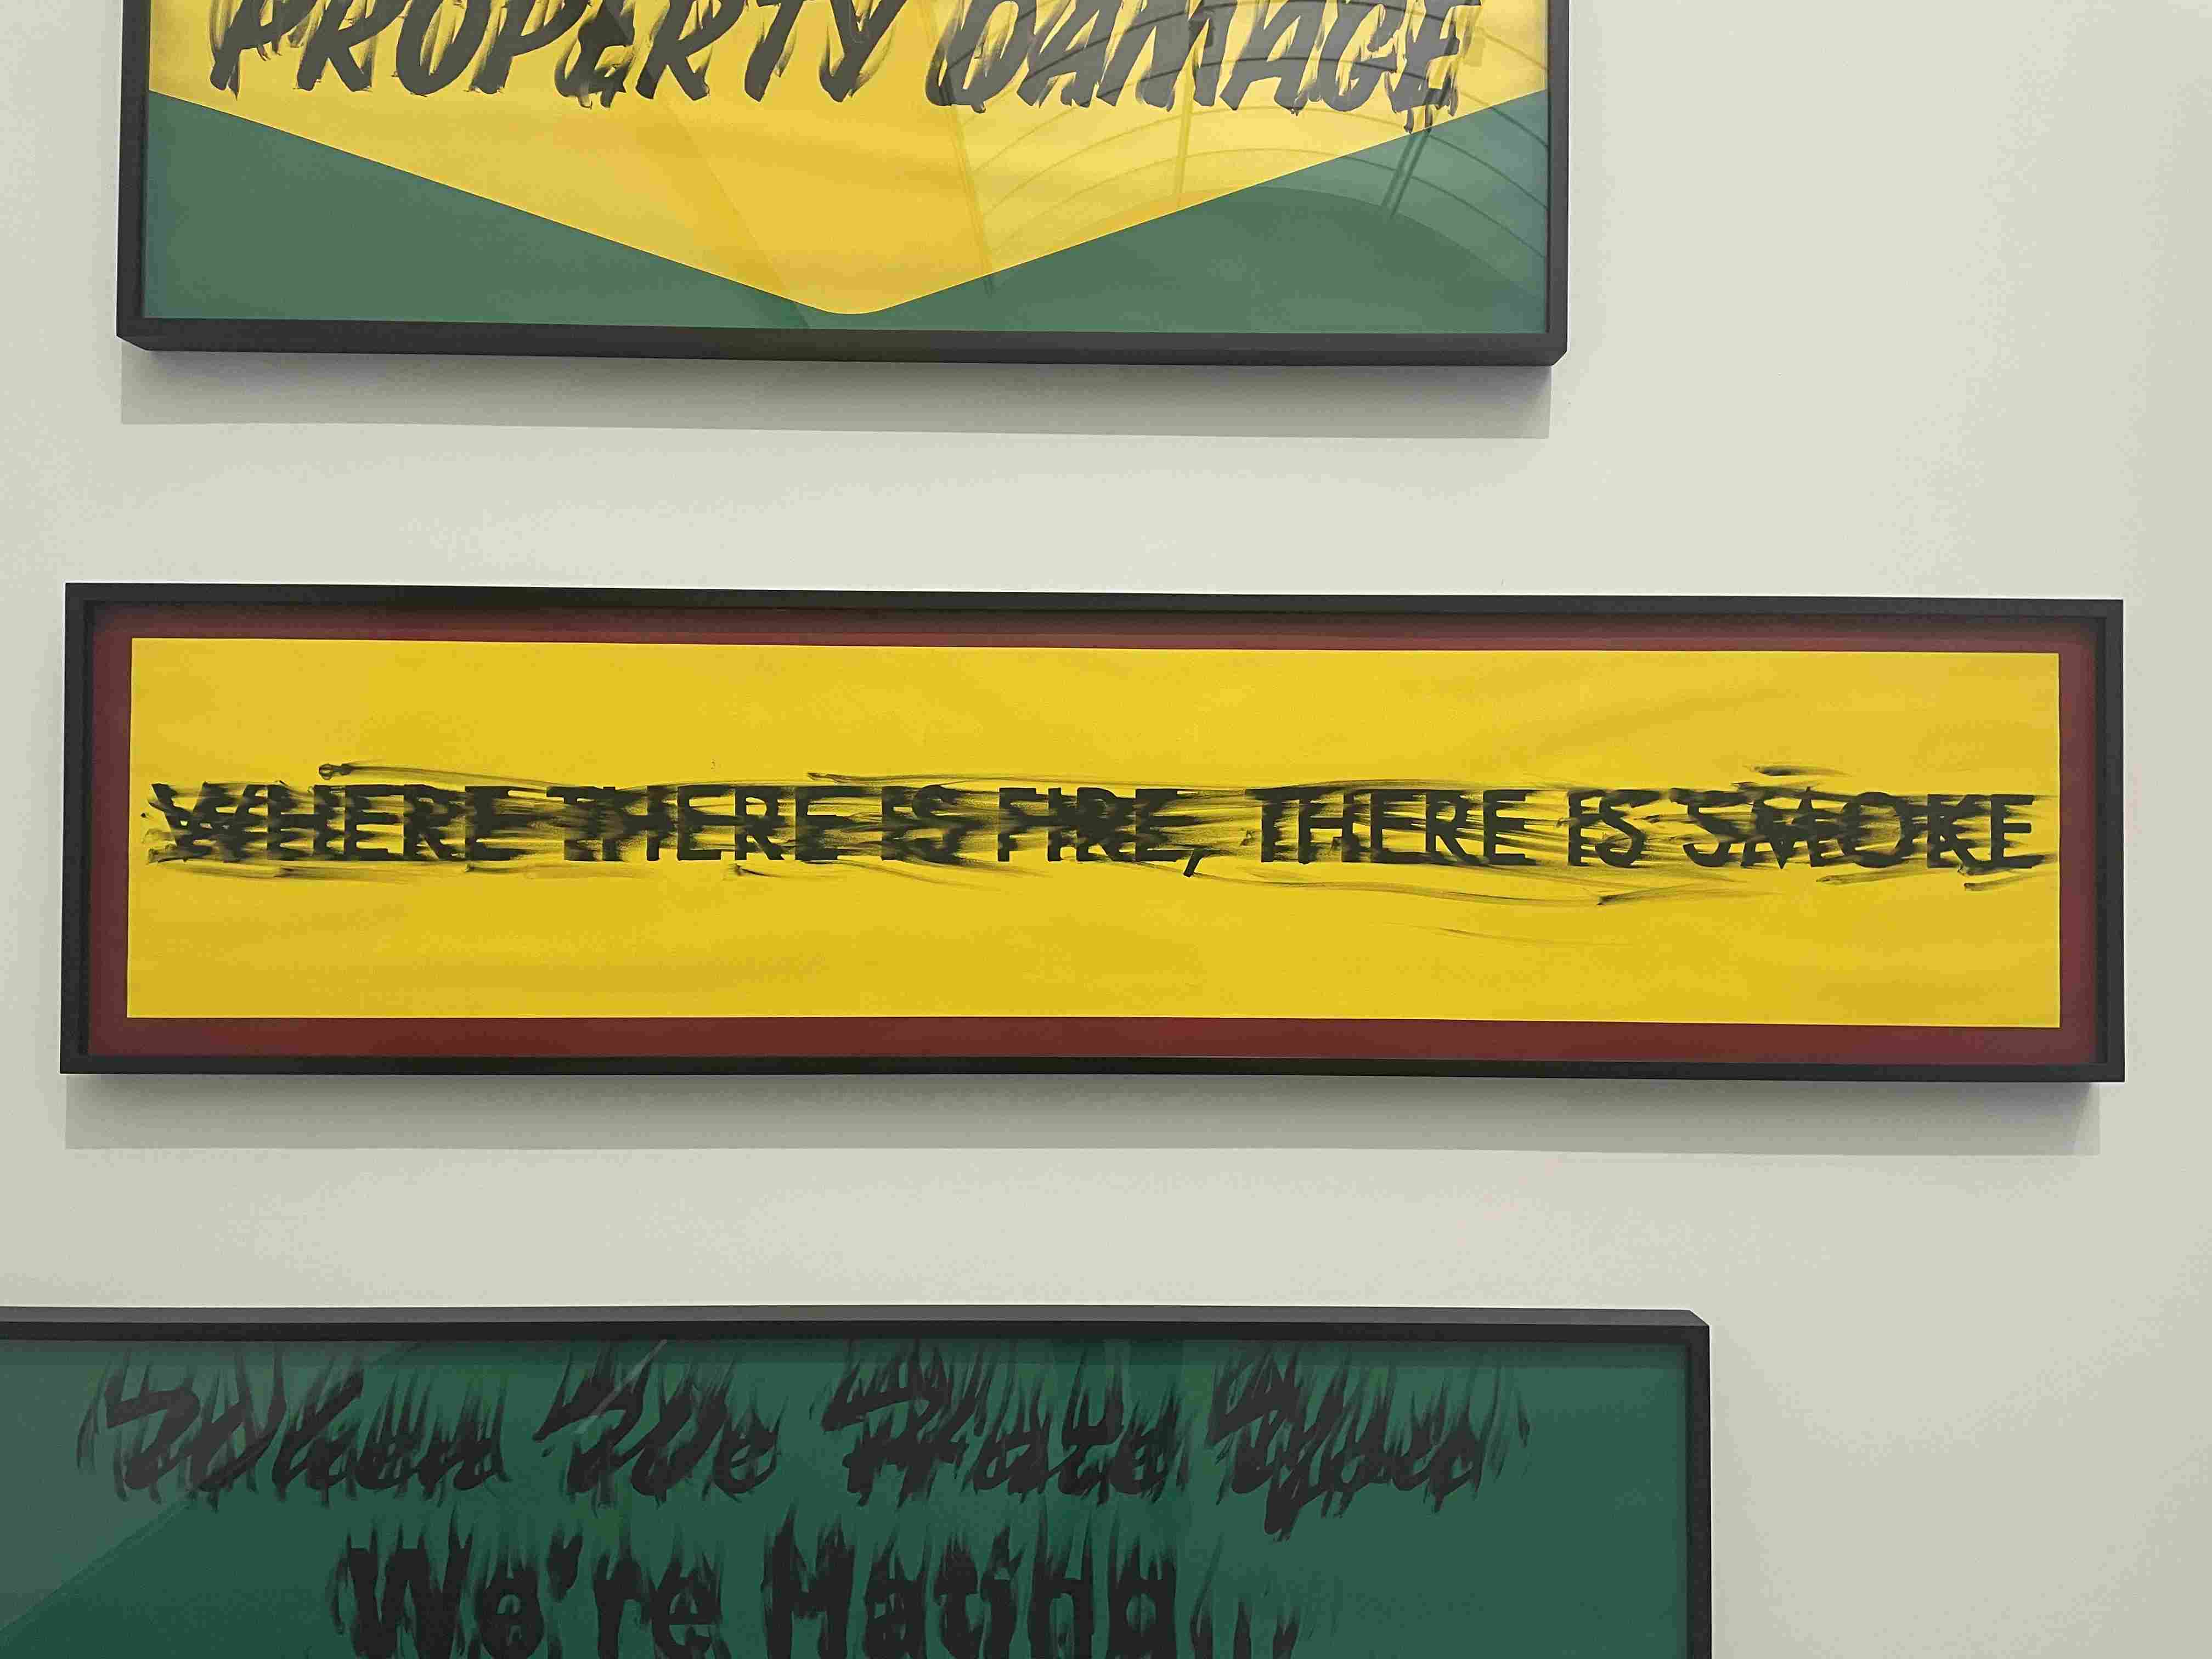 PROPERTY DAMAGE
WHERE THERE IS FIRE, THERE IS SMOKE
When We Hate You
We're Hating